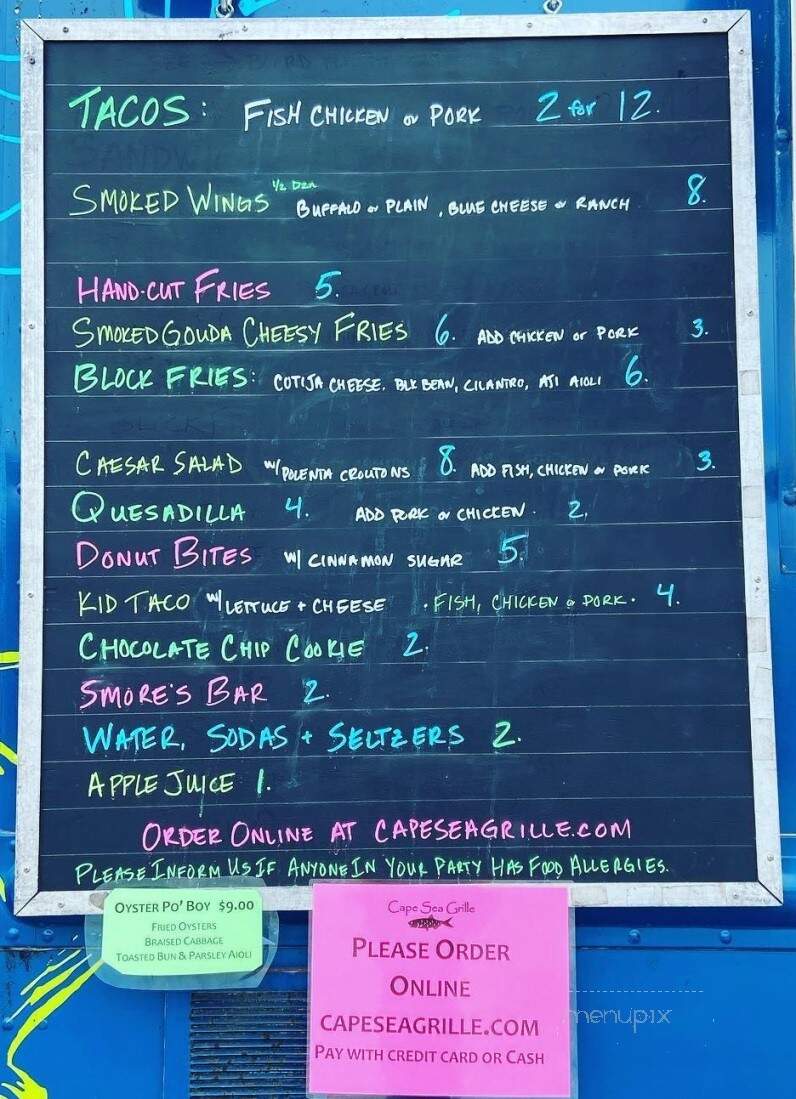 TACOS: FISH CHICKEN or PORK 2 for 12.
SMOKED WINGS 1/2 DZN BUFFALO or PLAIN, BLUE CHEESE or RANCH 8.
HAND-CUT FRIES 5.
SMOKED GOUDA CHEESY FRIES 6. ADD CHICKEN or PORK 3.
BLOCK FRIES: COTIJA CHEESE. BLK BEAN, CILANTRO, AJI AIOLI 6.
CAESAR SALAD w/ POLENTA CROUTONS 8. ADD FISH, CHICKEN or PORK 3.
QUESADILLA 4. ADD PORK or CHICKEN. 2.
DONUT BITES w/ CINNAMON SUGAR 5.
KID TACO w/ LETTUCE + CHEESE • FISH, CHICKEN or PORK • 4.
CHOCOLATE CHIP COOKIE 2.
SMORE'S BAR 2.
WATER, SODAS + SELTZERS 2.
APPLE JUICE 1.
ORDER ONLINE AT CAPESEAGRILLE.COM
PLEASE INFORM US IF ANYONE IN YOUR PARTY HAS FOOD ALLERGIES.
OYSTER PO' BOY $9.00
FRIED OYSTERS
BRAISED CABBAGE
TOASTED BUN & PARSLEY AIOLI
Cape Sea Grille
PLEASE ORDER
ONLINE
CAPESEAGRILLE.COM
PAY WITH CREDIT CARD OR CASH
menupix